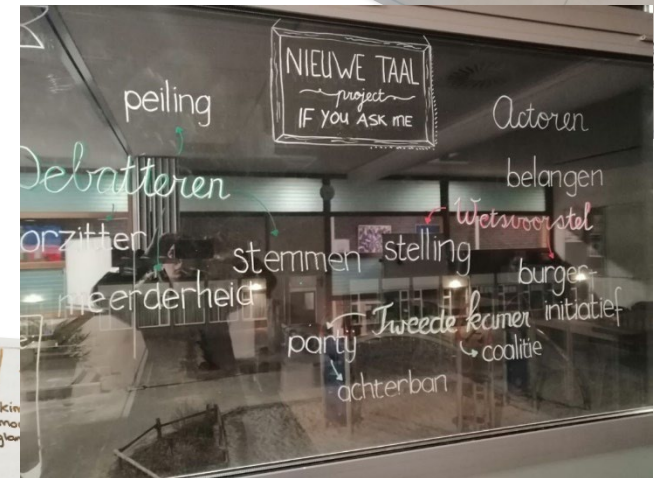 NIEUWE TAAL
project
IF YOU ASK ME
peiling
Actoren
Debatteren
belangen
Wetsvoorstel
orzitter
stemmen
stelling
burger-
initiatief
meerderheid
Tweede kamer
party
coalitie
achterban